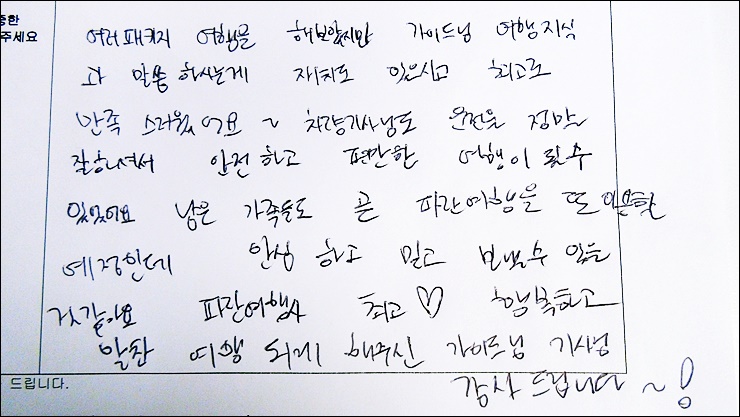 중한
주세요
여러패키지 여행을 해보았지만 가이드님 여행지식
과 말씀하시는게 재치도 있으시고 최고로
만족 스러웠어요~ 차량기사님도 운전을 정말
잘하셔서 안전하고 편안한 여행이 될수
있었어요 남은 가족들도 곧 파란여행을 또 이용할
예정인데 안심하고 믿고 보낼수 있을
것같아요 파란여행사 최고♡ 행복하고
알찬 여행 되게 해주신 가이드님 기사님
드립니다.
감사드립니다~!